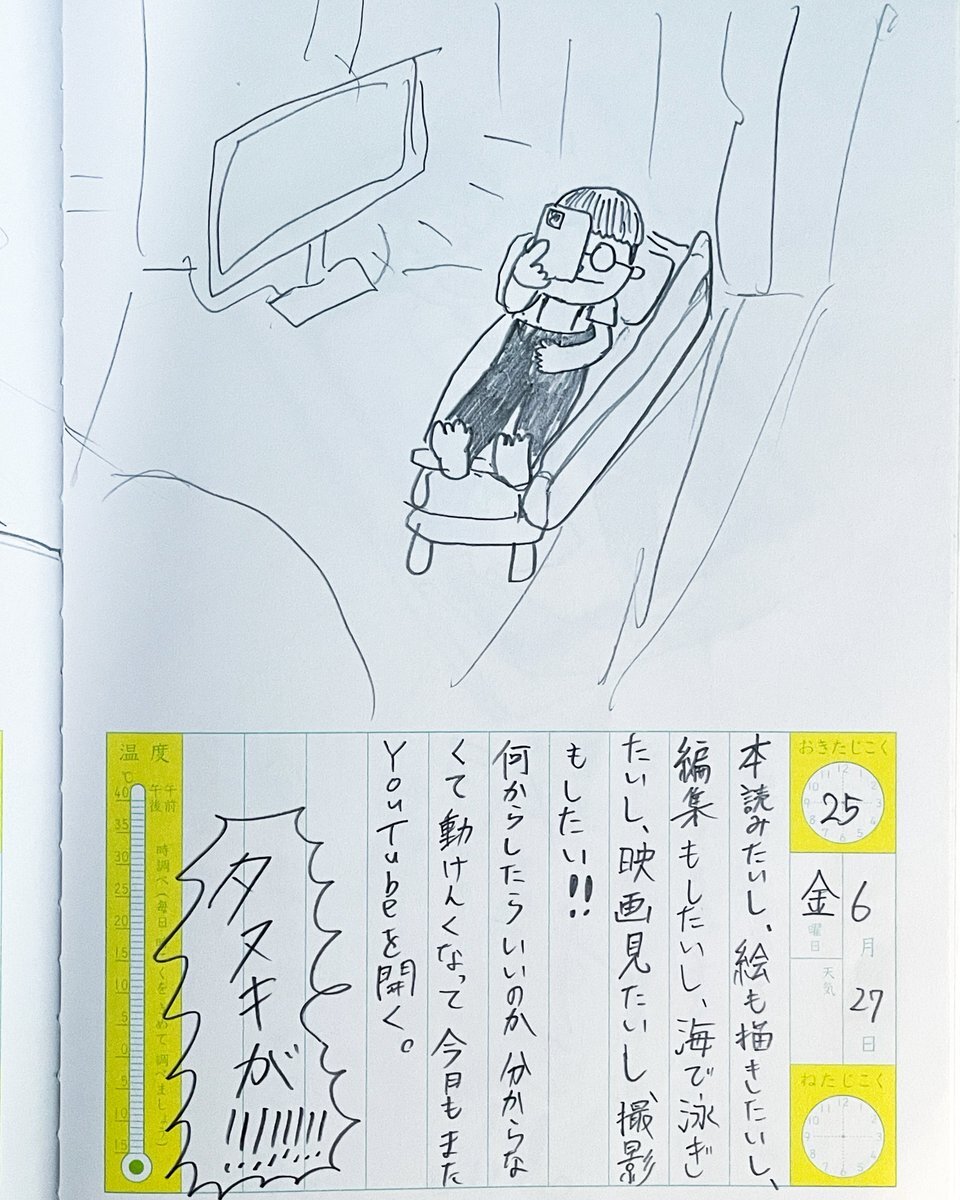 おきたじこく
25
6月27日
金曜日
天気
ねたじこく
本読みたいし、絵も描きたいし、
編集もしたいし、海で泳ぎ
たいし、映画見たいし、撮影
もしたい!!
何からしたらいいのか分からな
くて動けんくなって今日もまた
YouTubeを開く。
タヌキが!!!!!!!
温度
℃
午前
午後
時調べ(毎日
くをきめて調べましょう)
40
35
30
25
20
15
10
5
0
5
10
15